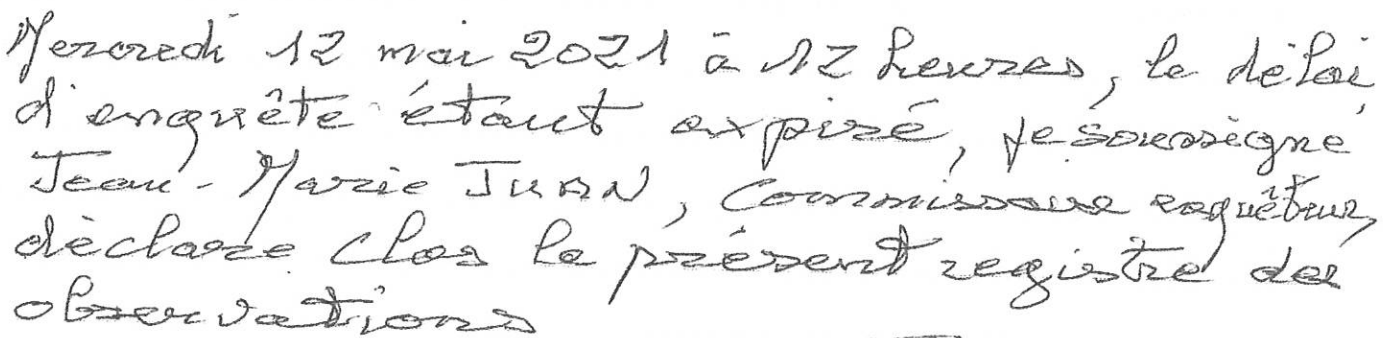 Mercredi 12 mai 2021 à 12 heures, le délai
d'enquête étant expiré, je soussigné
Jean-Marie JUAN, Commissaire enquêteur,
déclare clos le présent registre des
observations